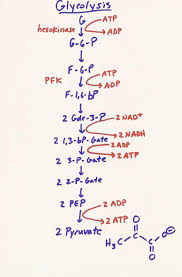 Glycolysis
G
hexokinase
ATP
ADP
G-6-P
F-6-P
PFK
ATP
ADP
F-1,6-bP
2 Gde-3-P
2 NAD+
2 NADH
2 1,3-bP-Gate
2 ADP
2 ATP
2 3-P-Gate
2 2-P-Gate
2 PEP
2 ADP
2 ATP
2 Pyruvate
O
O
H3C
O